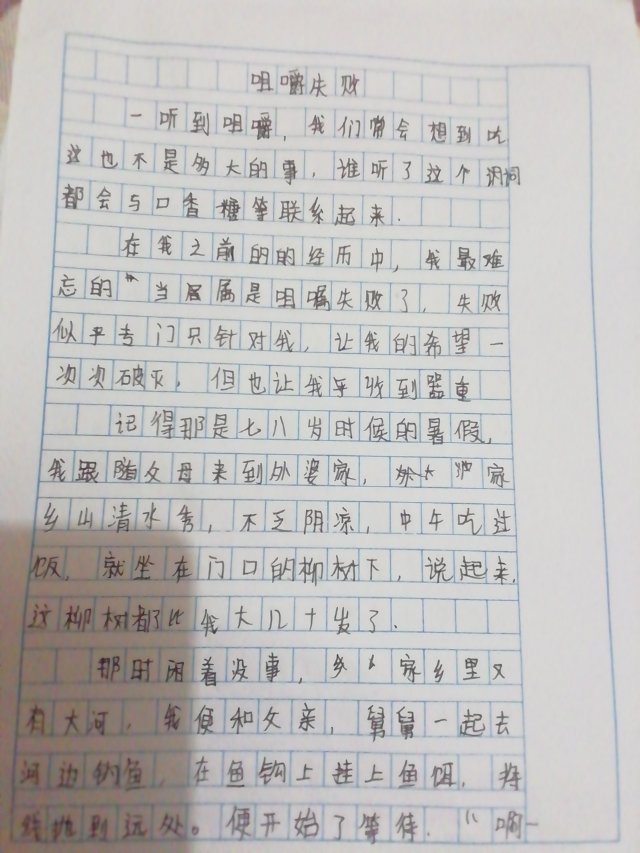 咀嚼失败
一听到咀嚼，我们常会想到吃
这也不是多大的事，谁听了这个词
都会与口香糖等联系起来．
在我之前的的经历中，我最难
忘的"当属是咀嚼失败了，失败
似乎专门只针对我，让我的希望一
次次破灭，但也让我收到器重
记得那是七八岁时候的暑假，
我跟随父母来到外婆家，家
乡山清水秀，不乏阴凉，中午吃过
饭，就坐在门口的柳树下，说起来，
这柳树都比我大几十岁了．
那时闲着没事，家乡里又
有大河，我便和父亲，舅舅一起去
河边钓鱼，在鱼钩上挂上鱼饵，将
线抛到远处。便开始了等待．"啊一